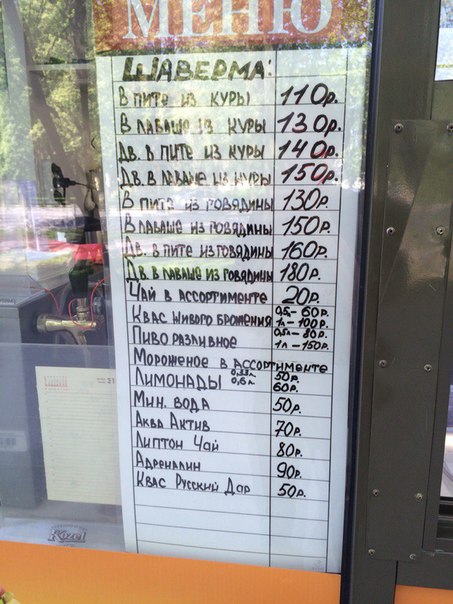 МЕНЮ
ШАВЕРМА:
В ПИТЕ ИЗ КУРЫ 110р.
В ЛАВАШЕ ИЗ КУРЫ 130р.
ДВ. В ПИТЕ ИЗ КУРЫ 140р.
ДВ. В ЛАВАШЕ ИЗ КУРЫ 150р.
В ПИТЕ ИЗ ГОВЯДИНЫ 130р.
В ЛАВАШЕ ИЗ ГОВЯДИНЫ 150р.
ДВ. В ПИТЕ ИЗ ГОВЯДИНЫ 160р.
ДВ. В ЛАВАШЕ ИЗ ГОВЯДИНЫ 180р.
ЧАЙ В АССОРТИМЕНТЕ 20р.
КВАС ЖИВОГО БРОЖЕНИЯ 0,5л- 60р.
1л - 100р.
ПИВО РАЗЛИВНОЕ 0,5л - 80р.
1л - 150р.
МОРОЖЕНОЕ В АССОРТИМЕНТЕ
ЛИМОНАДЫ 0,33л. 50р.
0,6л. 60р.
МИН. ВОДА 50р.
АКВА АКТИВ 70р.
ЛИПТОН ЧАЙ 80р.
АДРЕНАЛИН 90р.
КВАС РУССКИЙ ДАР 50р.
Kozel